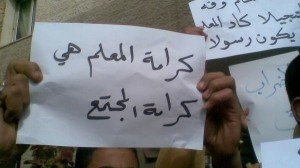 كرامة المعلم هي
كرامة المجتمع
قم للمعلم وفه
التبجيلا كاد المعلم
يكون رسولا